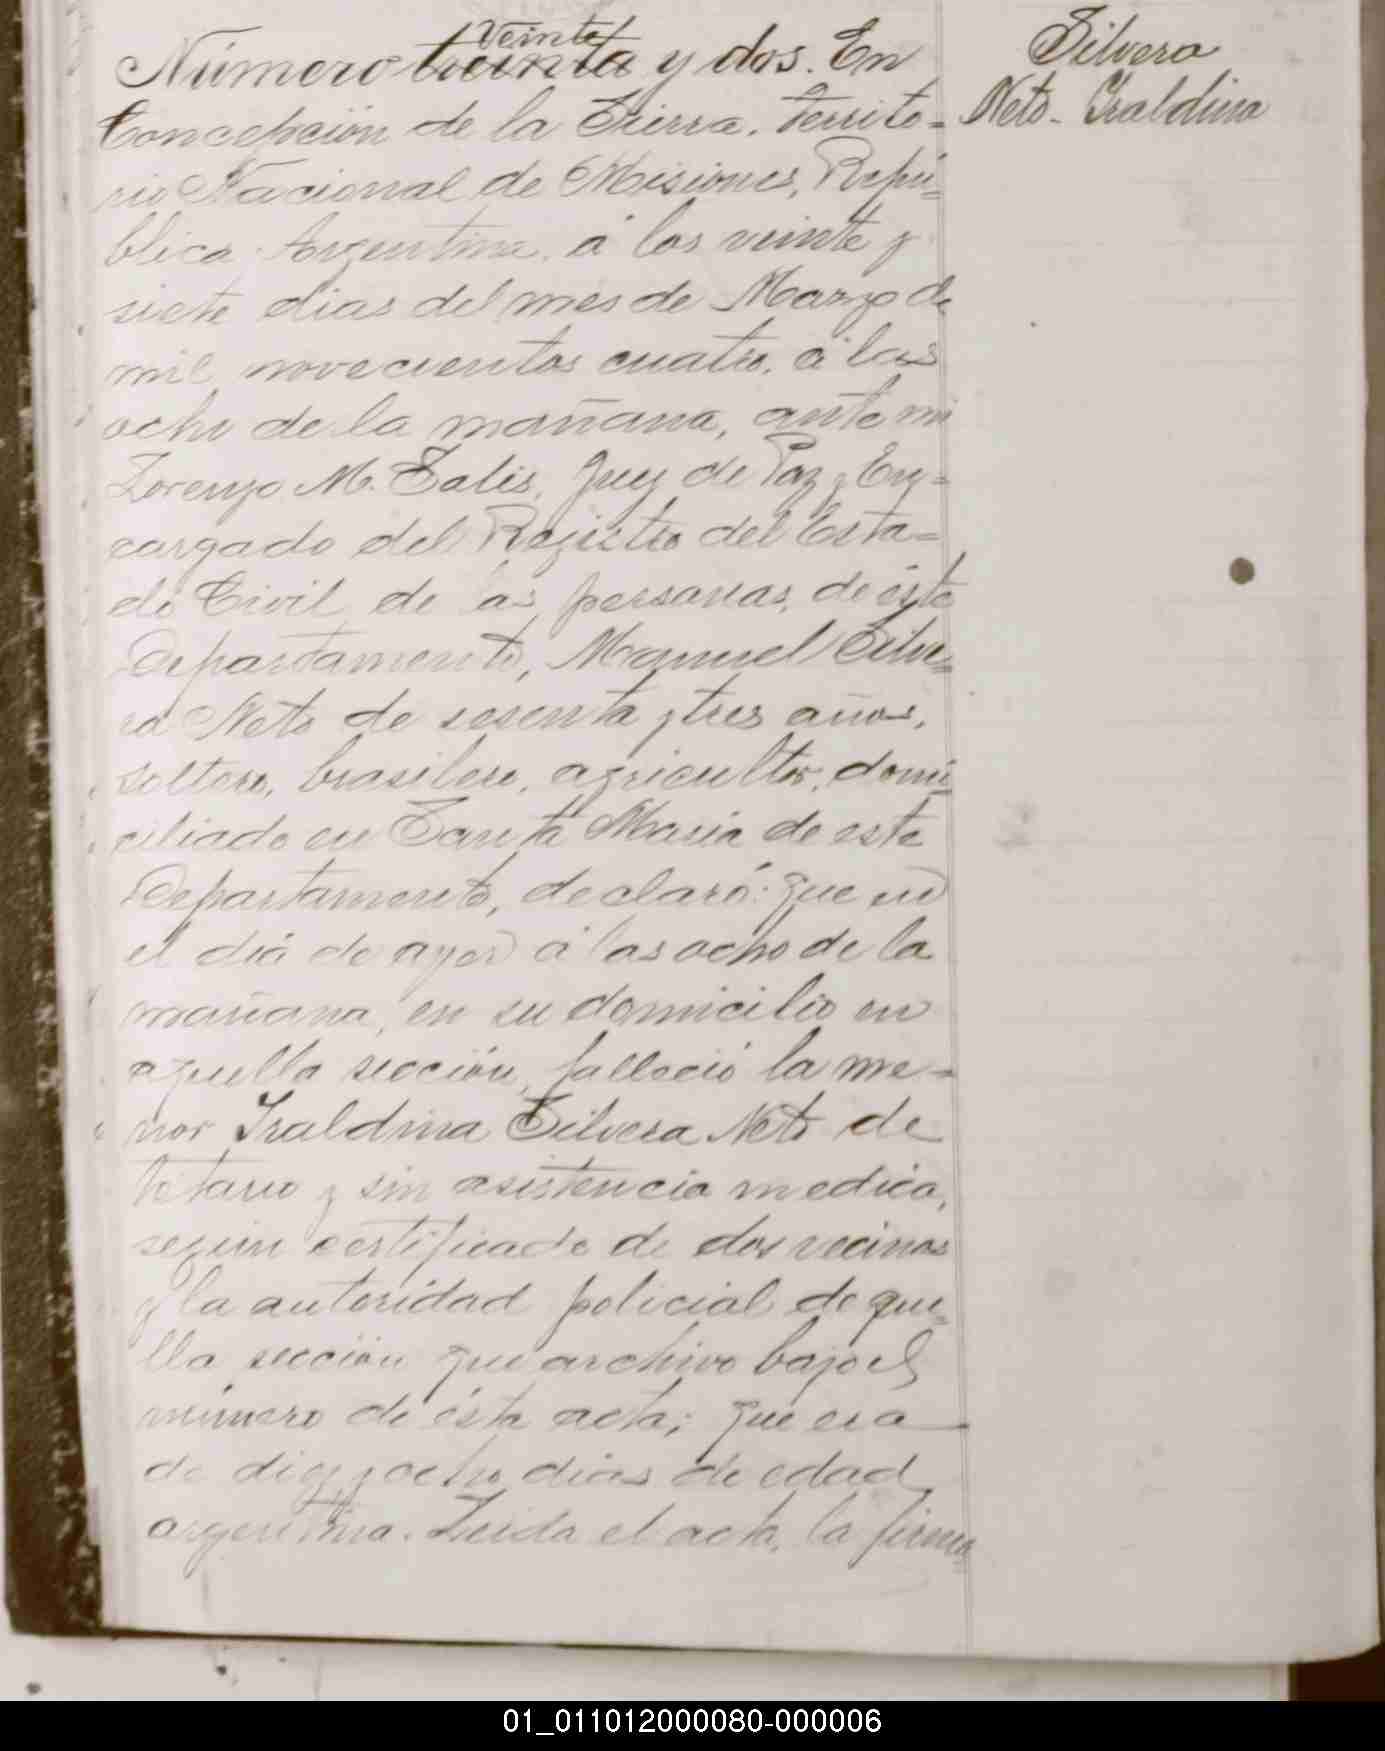 Veinte
Número treinta y dos. En
Concepción de la Sierra, Territo=
rio Nacional de Misiones, Repú=
blica Argentina, á los veinte y
siete dias del mes de Marzo de
mil novecientos cuatro, á las
ocho de la mañana, ante mi
Lorenzo M. Solis, Juez de Paz y En=
cargado del Registro del Esta=
do Civil de las personas, de éste
Departamento, Manuel Silve=
ra Neto de sesenta y tres años,
soltero, brasilero, agricultor, domi=
ciliado en Santa Maria de este
Departamento, declaró: que en
el dia de ayer á las ocho de la
mañana, en su domicilio en
aquella sección, falleció la me=
nor Iraldina Silvera Neto de
tetano y sin asistencia medica,
segun certificado de dos vecinos
y la autoridad policial de que=
lla sección que archivo bajo el
número de ésta acta; que era
de diez y ocho dias de edad
argentina. Leida el acta, la firma=
Silvera
Neto. Iraldina
01_011012000080-000006